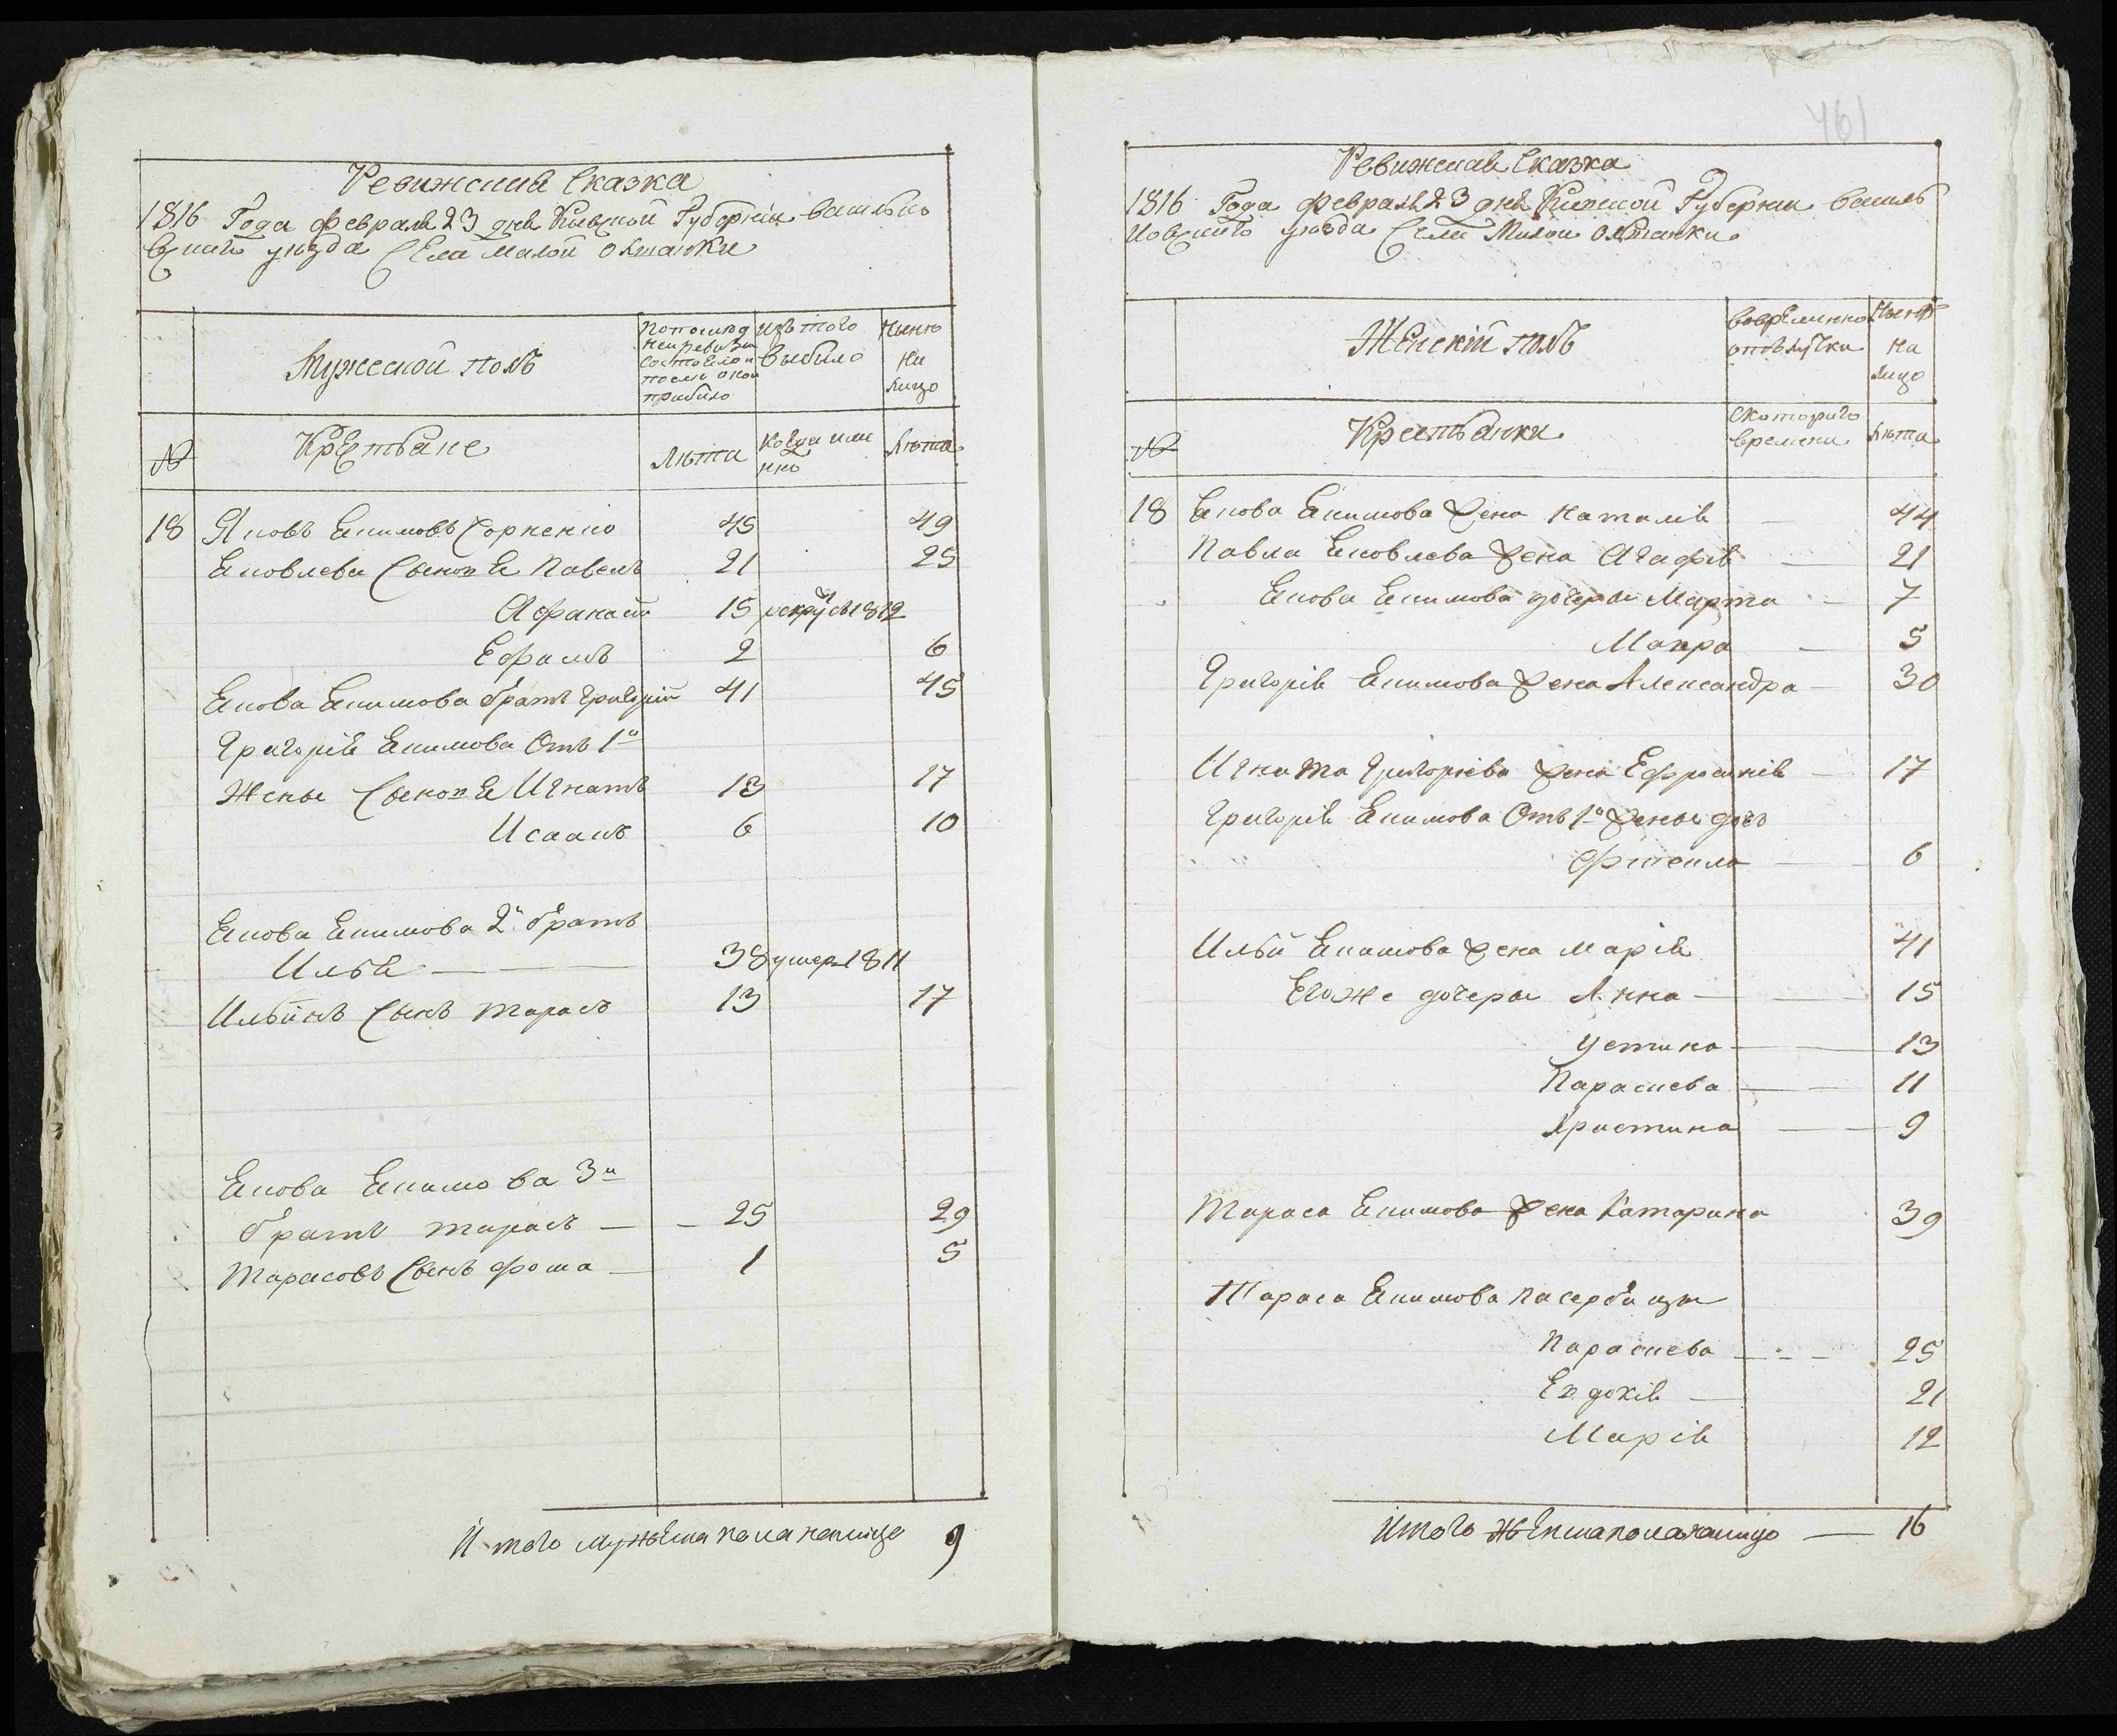 461
Ревижская Сказка
1816 Года февраля 23 дня Киевской Губернiи василько
вскаго уѣзда Села малой олтанки
Мужеской полъ
По послѣд
ней ревизiи
состояло и
после оной
прибыло
изъ того
выбыло
Нынѣ
на
лицо
№
Крестьяне
лѣта
когда имен
но
лѣта
18 Яковъ Екимовъ 45 49
Яковлева Сыновья Павелъ 21 25
Афанасiй 15 рекрутъ 1812
Ефрамъ 2 6
Якова Якимова братъ григорiй 41 45
Григорiя Якимова Отъ 1й
Жены Сыновья Игнатъ 13 17
Исаакъ 6 10
Якова Якимова 2й братъ
Илья 38 умер 1811
Ильинъ Сынъ тарасъ 13 17
Якова Якимова 3й
братъ тарасъ 25 29
Тарасовъ Сынъ фома 1 5
Итого мужеска пола налице 9
Ревижская Сказка
1816 Года февраля 23 дня Киевской Губернии василь
ковскаго уѣзда Села Малой Олтанки
Женскiй полъ
во временно
отлучки
Нынѣ
на
лицо
№
Крестьянки
с котораго
времени
лѣта
18 Якова Якимова жена Наталiя 44
Павла Яковлева жена Агафiя 21
Якова Якимова дочеры Марта 7
Макра 5
Григорiя Якимова жена Александра 30
Игната Григориева жена Ефросинiя 17
Григорiя Якимова Отъ 1й жены дочъ
6
Ильи Якимова жена марiя 41
Егоже дочеры Анна 15
Устина 13
Параскева 11
Христина 9
Тараса Якимова жена Катарина 39
Тараса Якимова пасербицы
Параскева 25
Евдокiя 21
Марiя 12
Итого женска пола налицо 16